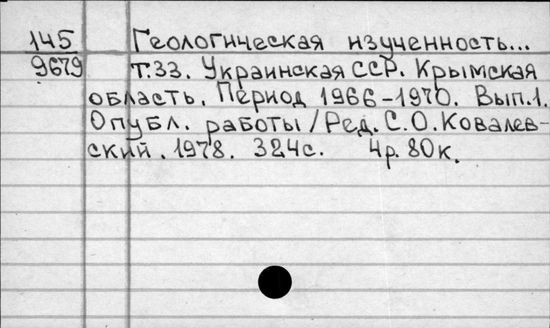 145 Геологическая изученность...
9679 т.33. Украинская ССР. Крымская
область. Период 1966-1970. Вып.1.
Опубл. работы/Ред. С.О.Ковалев-
ский. 1978. 324с. 4р.80к.